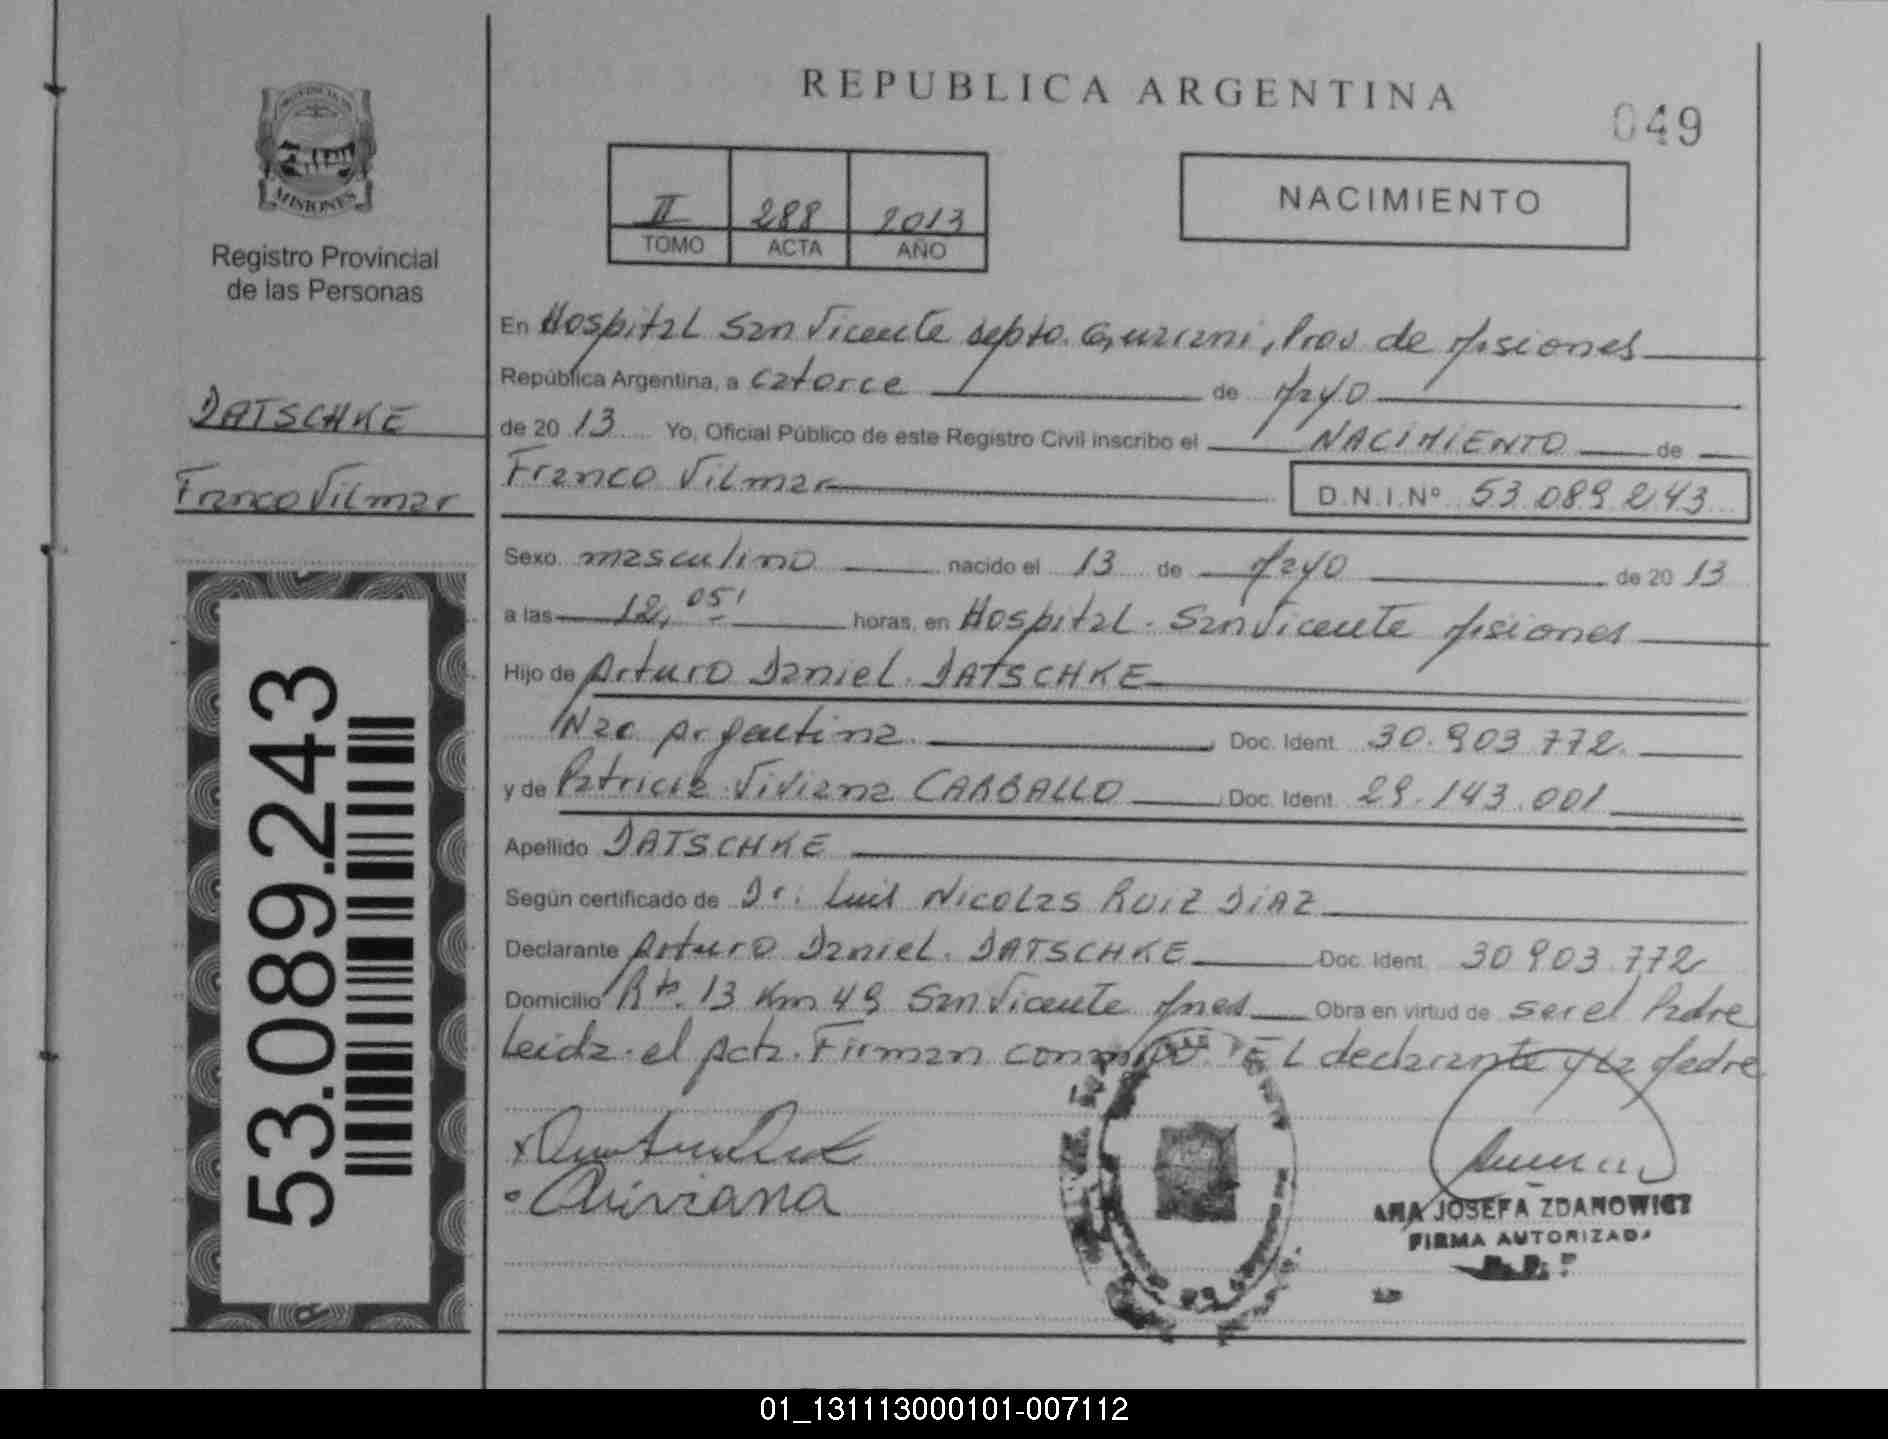 REPUBLICA ARGENTINA
049
PROVINCIA DE
MISIONES
Registro Provincial
de las Personas
II 288 2013
TOMO ACTA AÑO
NACIMIENTO
DATSCHKE
Franco Vilmar
53.089.243
En Hospital San Vicente Depto. Guarani, Prov de Misiones
República Argentina, a catorce de Mayo
de 20 13 Yo, Oficial Público de este Registro Civil inscribo el NACIMIENTO de
Franco Vilmar D.N.I.Nº 53.089.243
Sexo masculino nacido el 13 de Mayo de 20 13
a las 12,05' horas, en Hospital. San Vicente Misiones
Hijo de Arturo Daniel. DATSCHKE
Nac Argentina. Doc. Ident. 30.903.772.
y de Patricia Viviana CARBALLO Doc. Ident. 29.143.001
Apellido DATSCHKE
Según certificado de Dr. Luis Nicolas RUIZ DIAZ
Declarante Arturo Daniel. DATSCHKE Doc. Ident. 30.903.772
Domicilio Rta. 13 Km 49 San Vicente Mnes Obra en virtud de ser el Padre
Leida el Acta. Firman conmigo EL declarante y la Madre
Viviana
ANA JOSEFA ZDANOWICZ
FIRMA AUTORIZADA
01_131113000101-007112